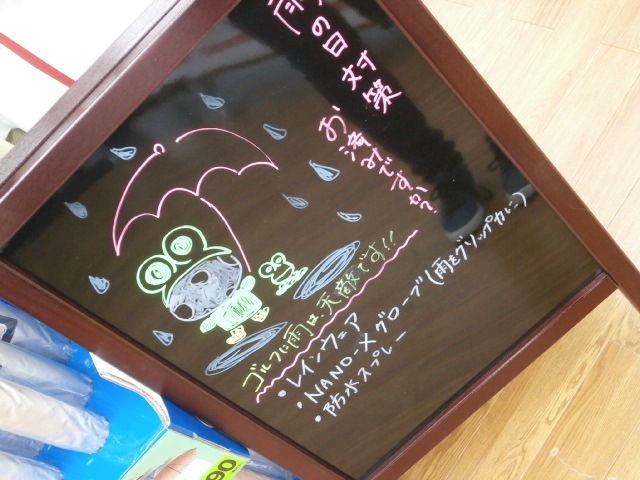 雨の日対策
お済みですか?
ゴルフに雨は、天敵です!!
・レインウェア
・NANO-Xグローブ(雨もグリップカレー)
・防水スプレー
90